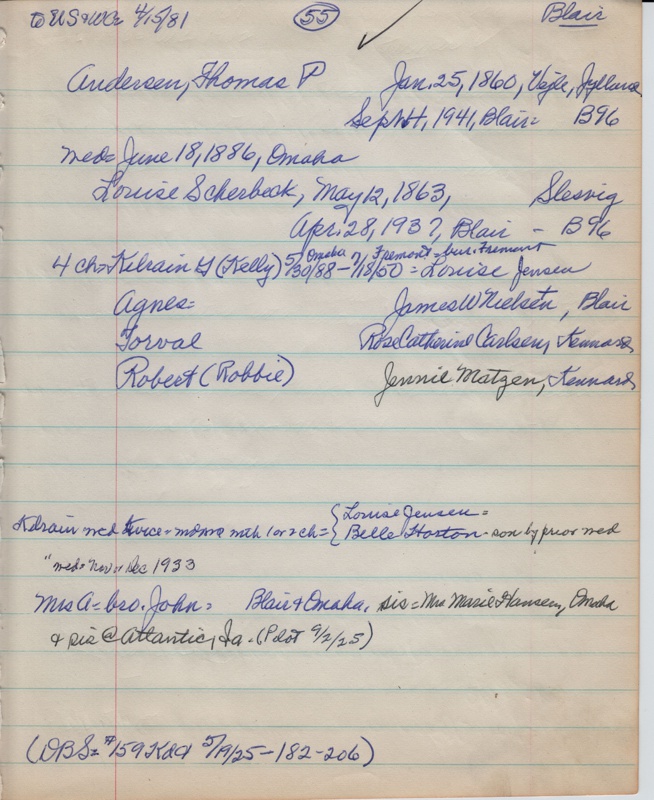 to US & WCo 4/15/81 55 Blair
Andersen, Thomas P Jan. 25, 1860, Vejle, Jylland
Sept 11, 1941, Blair = B96
med = June 18, 1886, Omaha
Louise Scherbeck, May 12, 1863, Slesvig
Apr. 28, 1937, Blair - B96
Omaha Fremont = bur. Fremont
4 ch = Kilrain G (Kelly) 5/30/88 - 7/18/50 = Louise Jensen
Agnes = James W Nielsen, Blair
Torval Rose Catherine Carlsen, Kennard
Robert (Robbie) Jennie Matzen, Kennard
Louise Jensen =
Kilrain med twice = 1 or 2 ch = { Belle Horton - son by prior med
" med = Nov or Dec 1933
Mrs A = bro. John = Blair & Omaha, sis = Mrs Marie Hansen, Omaha
& sis @ Atlantic, Ia - (Pilot 9/2/25)
(DBS = #159 5/19/25 - 182 - 206)